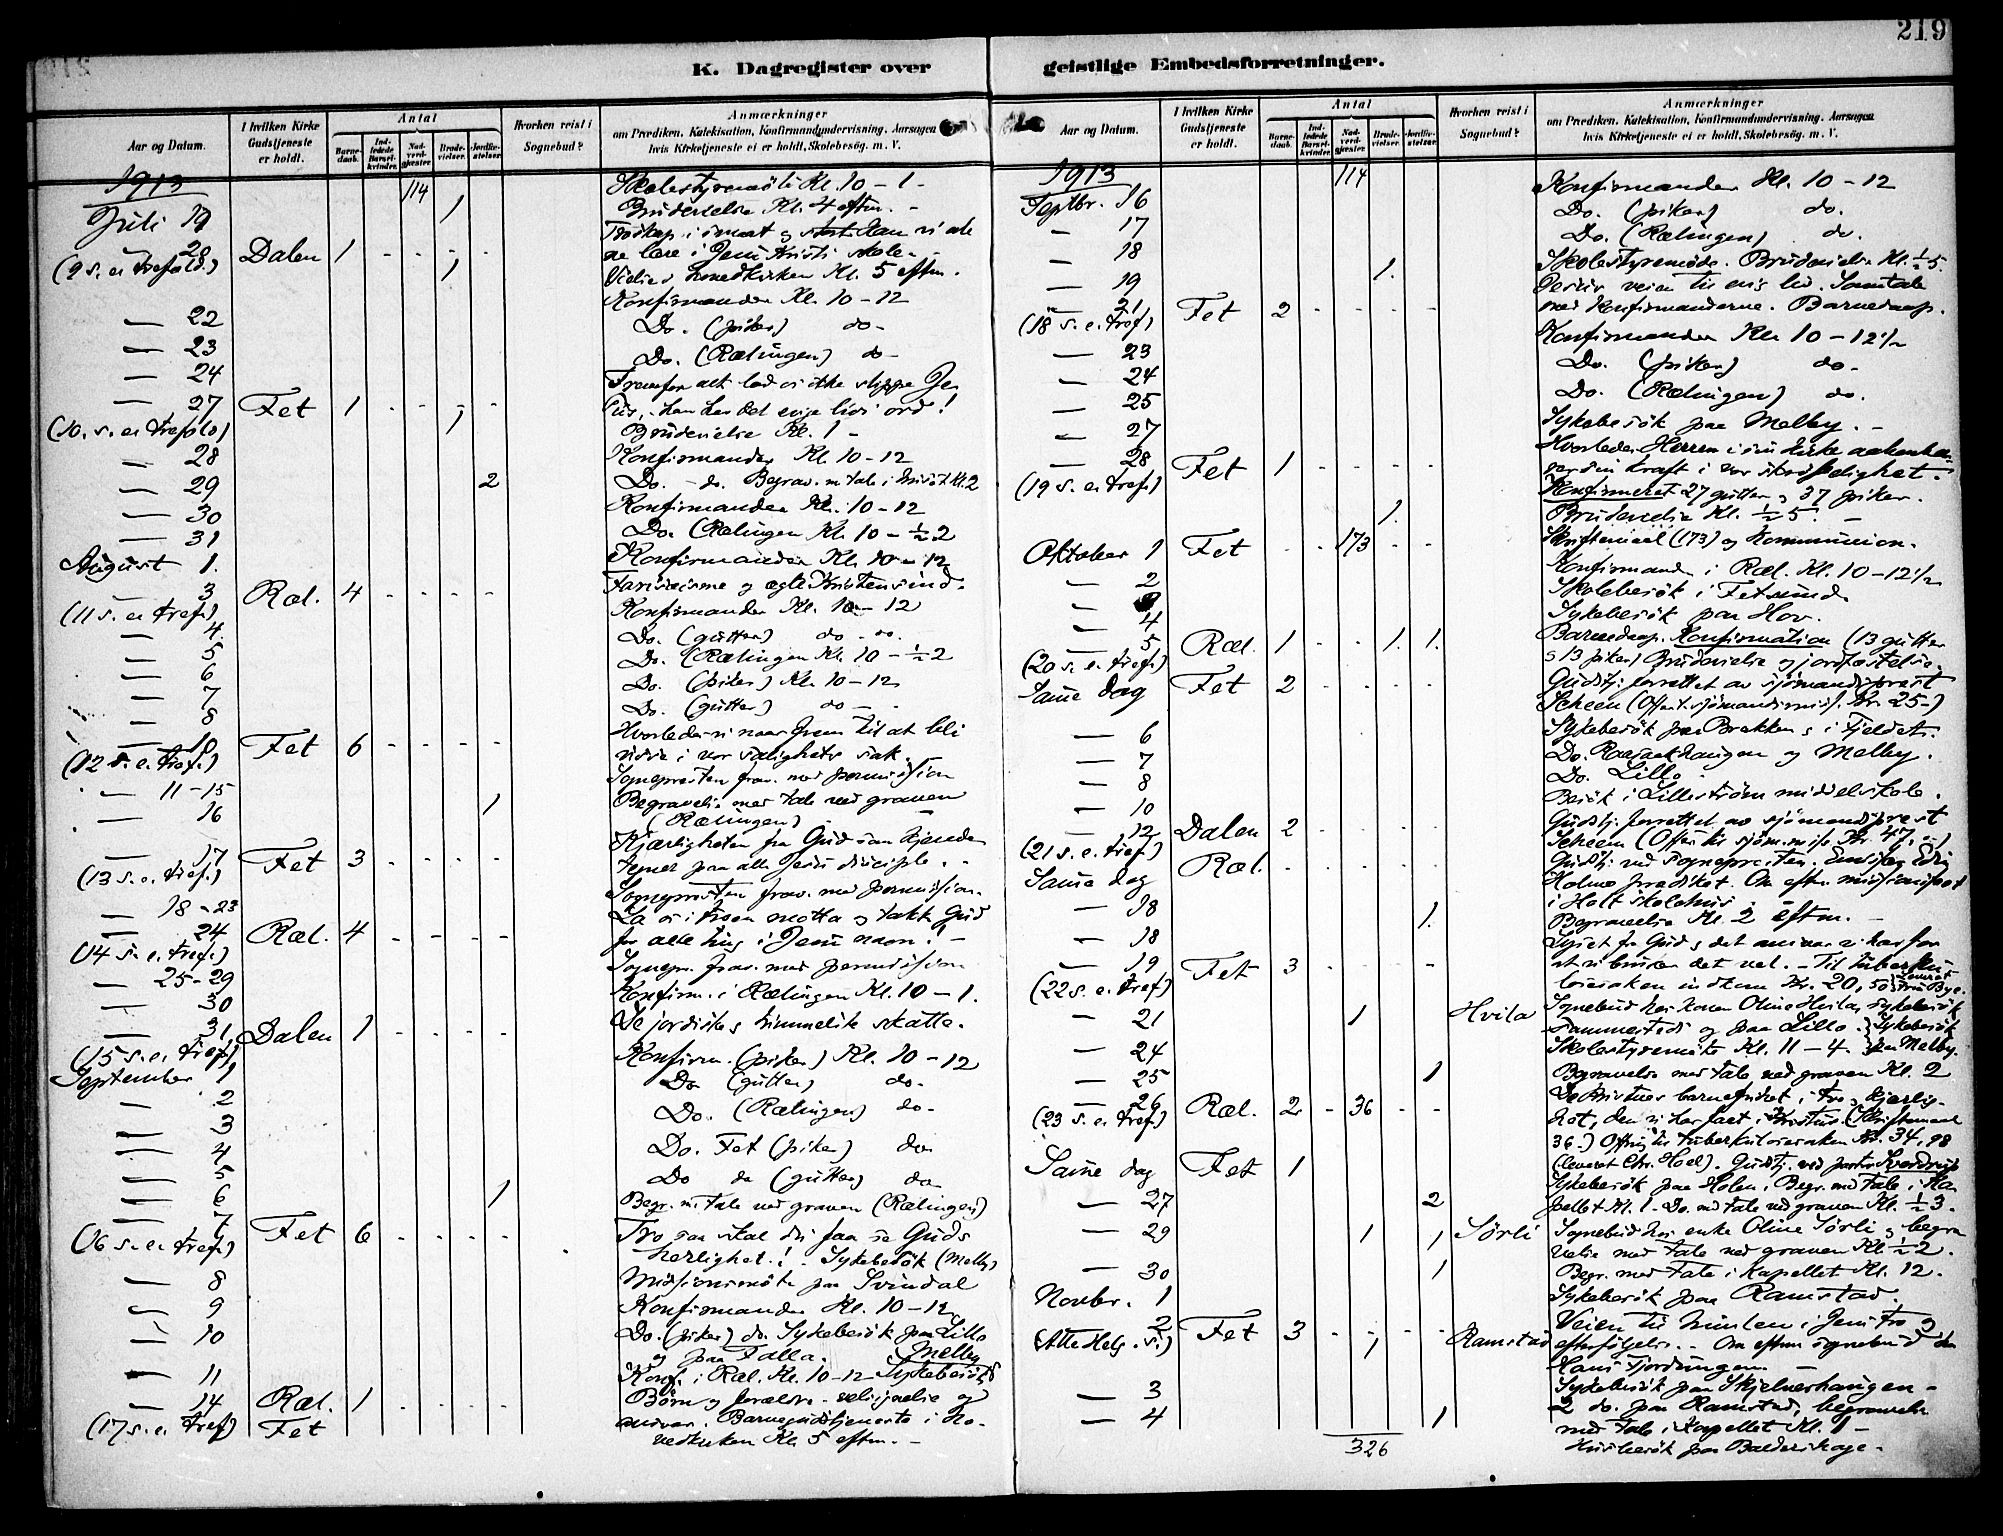 219
K. Dagregister over geistlige Embedsforretninger.
Aar og Datum.
I hvilken Kirke Gudstjeneste er holdt.
Antal
Barnedaab.
Indledede Barselkvinder.
Nadverdgjæster.
Brudevielser.
Jordfæstelser.
Hvorhen reist i Sognebud?
Anmærkninger
om Prædiken, Katekisation, Konfirmandundervisning, Aarsagen
hvis Kirketjeneste ei er holdt, Skolebesøg, m. V.
1913 114 Skolestyremöte Kl. 10 - 1 -
Juli 19 1 Brudevielse Kl. 4 eftm. -
(9 s. e. trefold.) Dalen 1 - - - -
1 Kl. 5 eftm.
22 Konfirmander Kl. 10 - 12
23 Do. (piker) do -
24 Do. (Rælingen) do -
27 Fet 1 - - 1 - Fremfor alt lad os ikke slippe Je
(10. s. e. trefold) sus, - han har det evige livs ord!
1 Brudevielse Kl. 1 -
28 Konfirmander Kl. 10 - 12
29 2 Do. - do. Begrav. m tale i Kl. 2
30 Konfirmander Kl. 10 - 12
31 Do. (Rælingen Kl. 10 - ½ 2
August 1. Konfirmander Kl. 10 - 12
3 Ræl. 4 - - - -
(11 s. e. tref.)
4. Konfirmander Kl. 10 - 12
5 Do. (gutter) do - do.
6 Do. (Rælingen Kl. 10 - ½ 2
7 Do. (piker) Kl. 10 - 12
8 Do. (gutter) do -
10 Fet 6 - - - - Hvorledes vi naar frem til at bli
(12 s. e. tref.) visse i vor saligheds sak.
11 - 15 Sognepresten frav. med permission
16 1 Begravelse med tale ved graven
(Rælingen)
17 Fet 3 - - - - Kjærligheten fra Gud som kjende
(13 s. e. tref.) tegner paa alle Jesu disciple. -
18 - 23 Sognepresten frav. med permission.
24 Ræl. 4 - - - - La os i troen motta og takk Gud
(14 s. e. tref.) for alle ting i Jesu navn! -
25 - 29 Sognepr. frav. med permission
30 Konfirm. i Rælingen Kl. 10 - 1.
31. Dalen 1 - - - - De jordiske og himmelske skatte.
(15 s. e. tref.)
September 1 Konfirm. (piker) Kl. 10 - 12
2 Do (gutter) do -
3 Do. (Rælingen) do -
4 Do. Fet (piker) do
5 Do do (gutter) do
6 1 Begr. m. tale ved graven (Rælingen)
7 Fet 6 - - - - Tro saa skal du faa se Guds
(16 s. e. tref.) herlighet! - Sykebesök (Melby)
8 Missionsmöte paa Svindal
9 Konfirmander Kl. 10 - 12
10 Do. (piker) do. Sykebesök paa Lillo
og paa Falla. Melby
11 Konf. i Ræl. Kl. 10 - 12 - Sykebesök
14 Ræl. 1 - - - - Börn og forældre - velsignelse og
(17 s. e. tref) Fet ansvar. Barnegudstjeneste i ho-
vedkirken Kl. 5 eftm. -
Aar og Datum.
I hvilken Kirke Gudstjeneste er holdt.
Antal
Barnedaab.
Indledede Barselkvinder.
Nadverdgjæster.
Brudevielser.
Jordfæstelser.
Hvorhen reist i Sognebud?
Anmærkninger
om Prædiken, Katekisation, Konfirmandundervisning, Aarsagen
hvis Kirketjeneste ei er holdt, Skolebesøg, m. V.
1913 114
Septbr. 16 Konfirmander Kl. 10 - 12
17 Do. (piker) do.
18 Do. (Rælingen) do.
19 1. Skolestyremöde. Brudevielse Kl. ½ 5.
21 Fet 2 - - - - Samtale
(18 s. e. tref) med Konfirmanderne. Barnedaap.
23 Konfirmander Kl. 10 - 12 ½
24 Do. (piker) do -
25 Do. (Rælingen) do.
27 Sykebesök paa Melby. -
28 Fet 1 - - - - Hvorledes Herren i sin kirke aabenba
(19 s. e. tref.) rer sin kraft i vor skröpelighet.
Konfirmeret 27 gutter og 37 piker.
1. Brudevielse Kl. ½ 5. -
Oktober 1 Fet - - 173 - - Skriftemaal (173) og Kommunion.
2 Konfirmand. i Ræl. Kl. 10 - 12 ½
Skolebesök i Fetsund.
4 Sykebesök paa Hov.
5 Ræl. 1 - - 1. 1. Barnedaap. Konfirmation (13 gutter
(20 s. e. tref.) og 13 piker) Brudevielse og jordfæstelse.
Same dag Fet 2 - - - - Gudstj. forrettet av sjömandsprest
Scheen (Offer t. sjömandsmis. Kr. 25 -)
6 Sykebesök paa Brakken og i Fjeldet.
7 Do. og Melby.
8 Do. Lillo
10 Besök i Lilleström middelskole.
12 Dalen 2 - - - - Gudstj. forrettet av sjömandsprest
(21 s. e. tref.) Scheen (Offer til sjöm.mis. Kr. 47, -)
Same dag Ræl. - - - - - Gudstj. ved sognepresten.
Holme prædiket. Om eftm. missionsfest
i Holt skolehus.
18 1. Begravelse Kl. 2 eftm. -
18
19 Fet 3 - - - - Lyset fra Gud og det ansvar vi har for
(22 s. e. tref) at vi bruker det vel. - Til tuberku-
losesaken indkom Kr. 20,50
21 1 Hvila Sognebud hos konen Oline Hvila, sykebesök
Sammerstad og paa Lillo. Sykebesök
24 Skolestyremöte Kl. 11 - 4. paa Melby.
25 1 Begravelse med tale ved graven Kl. 2
26 Ræl. 2 - 36 - - De kristnes barnefrihet i tro og kjærlig-
(23 s. e. tref.) het, den vi har faat i Kristus. (Skriftemaal
36.) Offring til tuberkulosesaken Kr. 34,98
Same dag Fet 1 (leveret Chr. Hoel). Gudstj. ved pastor Sverdrup
27 2 Sykebesök paa Holen. Begr. med tale i Ka
pellet Kl. 1 - Do. med tale ved graven Kl. ½ 3.
29 1 1 Sörli Sognebud hos enke Oline Sörli og begra
velse med tale ved graven Kl. ½ 2.
30 1 Begr. med tale i kapellet Kl. 12.
Novbr. 1 Sykebesök paa Ramstad.
2 Fet 3 - - - - Veien til himlen i Jesu tro og
(Alle Helg. s.) 1 Ramstad efterfölgelse. - Om eftm sognebud hos
Hans Fjordingen. -
3 Sykebesök paa Skjelverhaugen -
4 1 2 do. paa Ramstad, begravelse
med tale i Kapellet Kl. 1 -
326 Husbesök paa